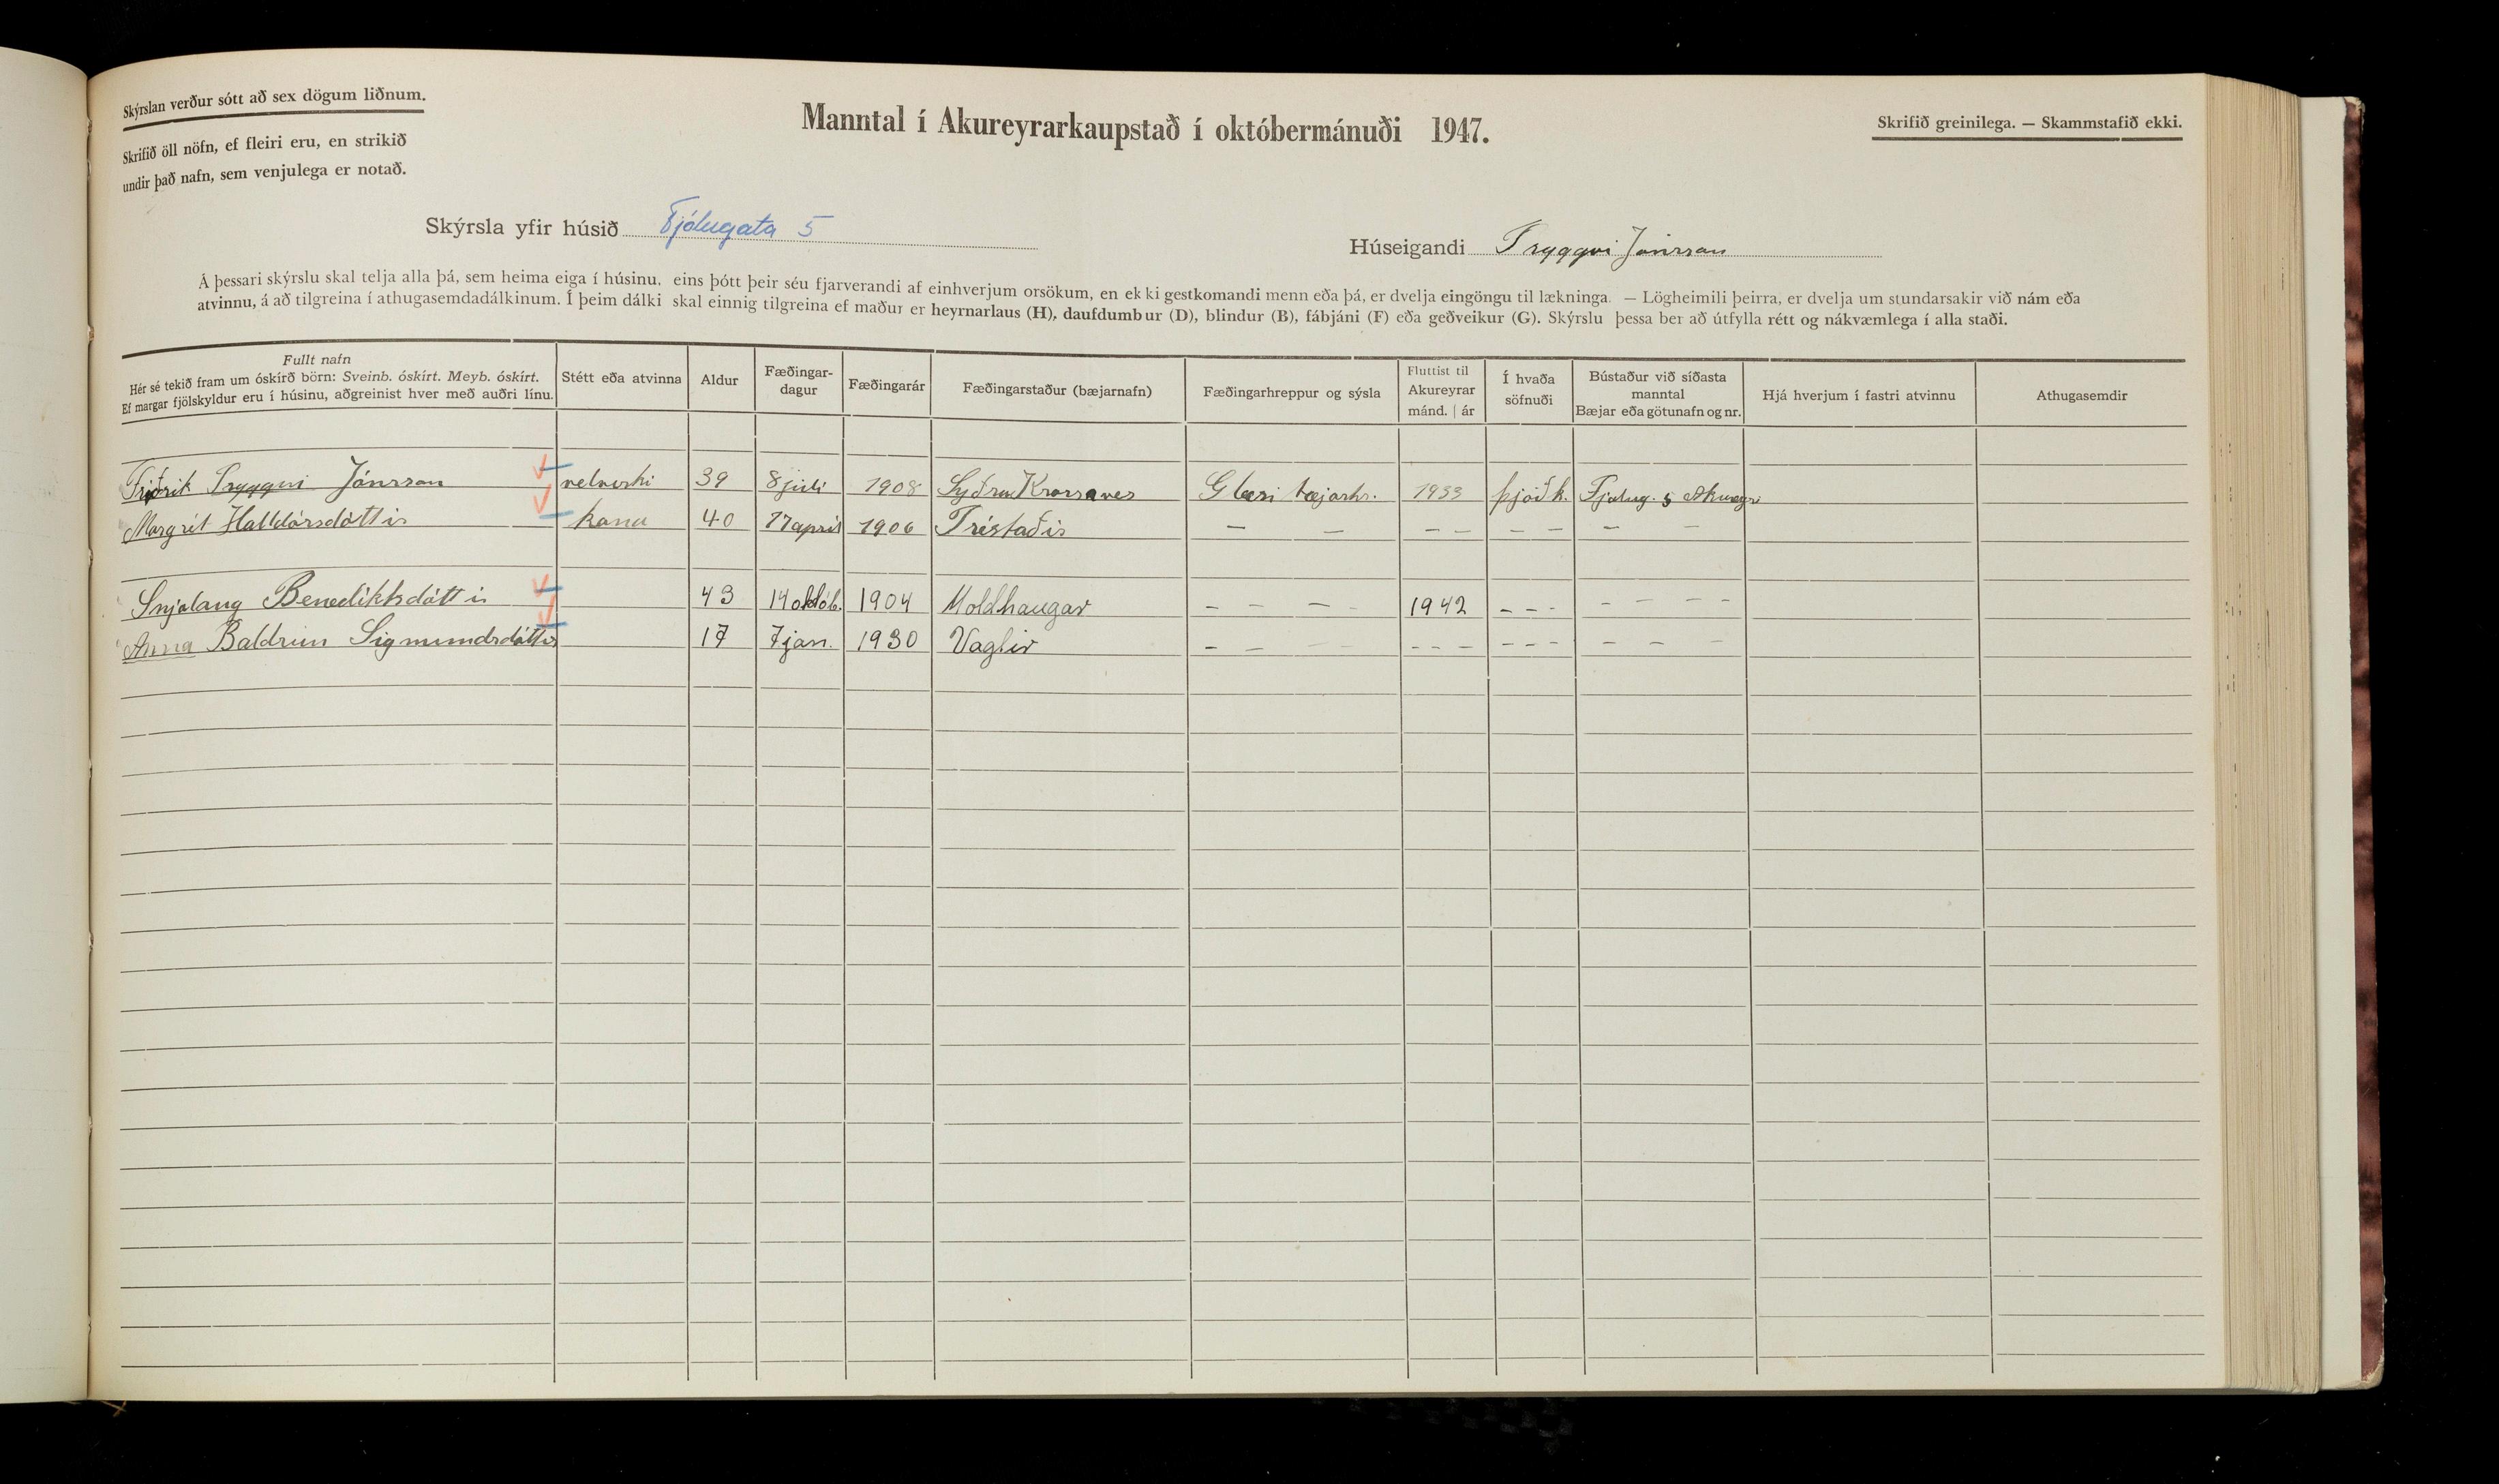 Skýrslan verður sótt að sex dögum liðnum.
Skrifið öll nöfn, ef fleiri eru, en strikið
undir það nafn, sem venjulega er notað.
Manntal í Akureyrarkaupstað í októbermánuði 1947.
Skrifið greinilega. — Skammstafið ekki.
Skýrsla yfir húsið Fjólugata 5
Húseigandi Tryggvi Jónsson
Á þessari skýrslu skal telja alla þá, sem heima eiga í húsinu, eins þótt þeir séu fjarverandi af einhverjum orsökum, en ekki gestkomandi menn eða þá, er dvelja eingöngu til lækninga. — Lögheimili þeirra, er dvelja um stundarsakir við nám eða
atvinnu, á að tilgreina í athugasemdadálkinum. Í þeim dálki skal einnig tilgreina ef maður er heyrnarlaus (H), daufdumbur (D), blindur (B), fábjáni (F) eða geðveikur (G). Skýrslu þessa ber að útfylla rétt og nákvæmlega í alla staði.
Fullt nafn
Hér sé tekið fram um óskírð börn: Sveinb. óskírt. Meyb. óskírt.
Ef margar fjölskyldur eru í húsinu, aðgreinist hver með auðri línu.
Stétt eða atvinna
Aldur
Fæðingar-
dagur
Fæðingarár
Fæðingarstaður (bæjarnafn)
Fæðingarhreppur og sýsla
Fluttist til
Akureyrar
mánd. | ár
Í hvaða
söfnuði
Bústaður við síðasta
manntal
Bæjar eða götunafn og nr.
Hjá hverjum í fastri atvinnu
Athugasemdir
Friðrik Tryggvi Jónsson 39 8 júli 1908 Syðra Krossanes Glæsibæjarhr. 1933 þjóðk. Fjólug. 5 Akureyri
Margrét Halldórsdóttir kona 40 17 apríl 1906 Tréstaðir — — — — — — — —
Snjólaug Benediktsdóttir 43 14 októb. 1904 Moldhaugar — — — — 1942 — — — — — — —
Anna Baldrún Sigmundsdóttir 17 7 jan. 1930 Vaglir — — — — — — — — — — — — —